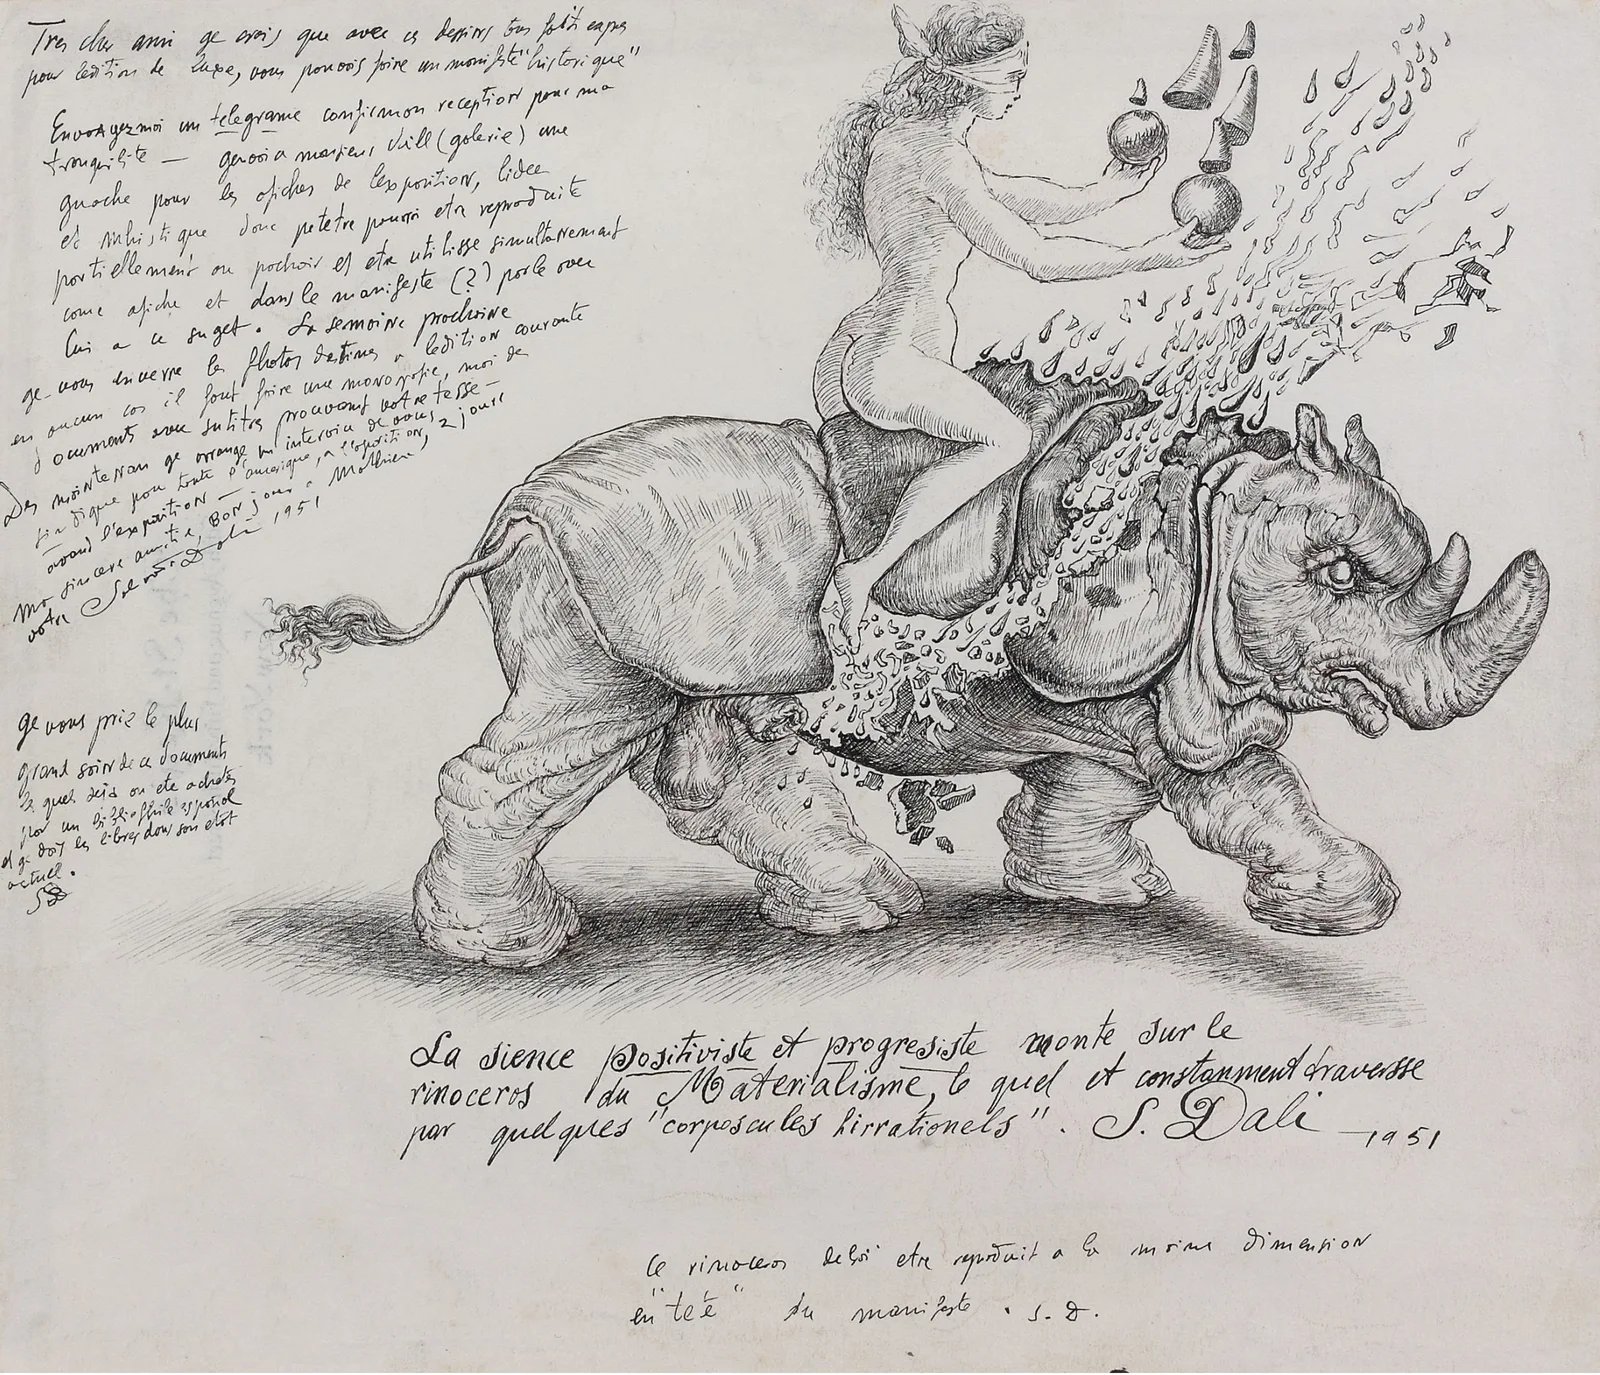 Tres cher ami ge crois que avec ce dessins tous fait expres
pour ledition de luxe, vous pouvois foire un manifeste "historique"
Envoyez moi un telegrame confirmon reception pour ma
tranquilite — gevoi a monsieur (galerie) une
guache pour les afiches de lexposition, lidee
et donc petetre pourra etre reproduite
portiellement ou pochoir et etre utilisse simultanement
come afiche et dans le manifeste (?) parle avec
lui a ce suget. La semaine prochoine
ge vous enverre les photos destines a ledition couronte
en aucun cas il fout foire une monogrofie, moi de
documents avec sutitres prouvant votre tesse —
Des mointenan ge arrange un interviu de vous
pour toute l'amerique, a l'exposition, 2 jours
avand l'exposition — Bonjour a Mathieu,
ma sincere amitie,
votre Salvador Dali 1951
ge vous prie le plus
grand soin de ce documents
le quel deja ou ete achetes
par un bibliophile espanol
et ge dois les libres dans son etat
actuel.
SD
La sience positiviste et progresiste monte sur le
rinoceros du Materialisme, le quel et constanment traversse
par quelques "corposcules hirrationels". S. Dali — 1951
Ce rinoceros deboi etre reproduit a la meime dimension
"en teté" du manifeste. S. D.